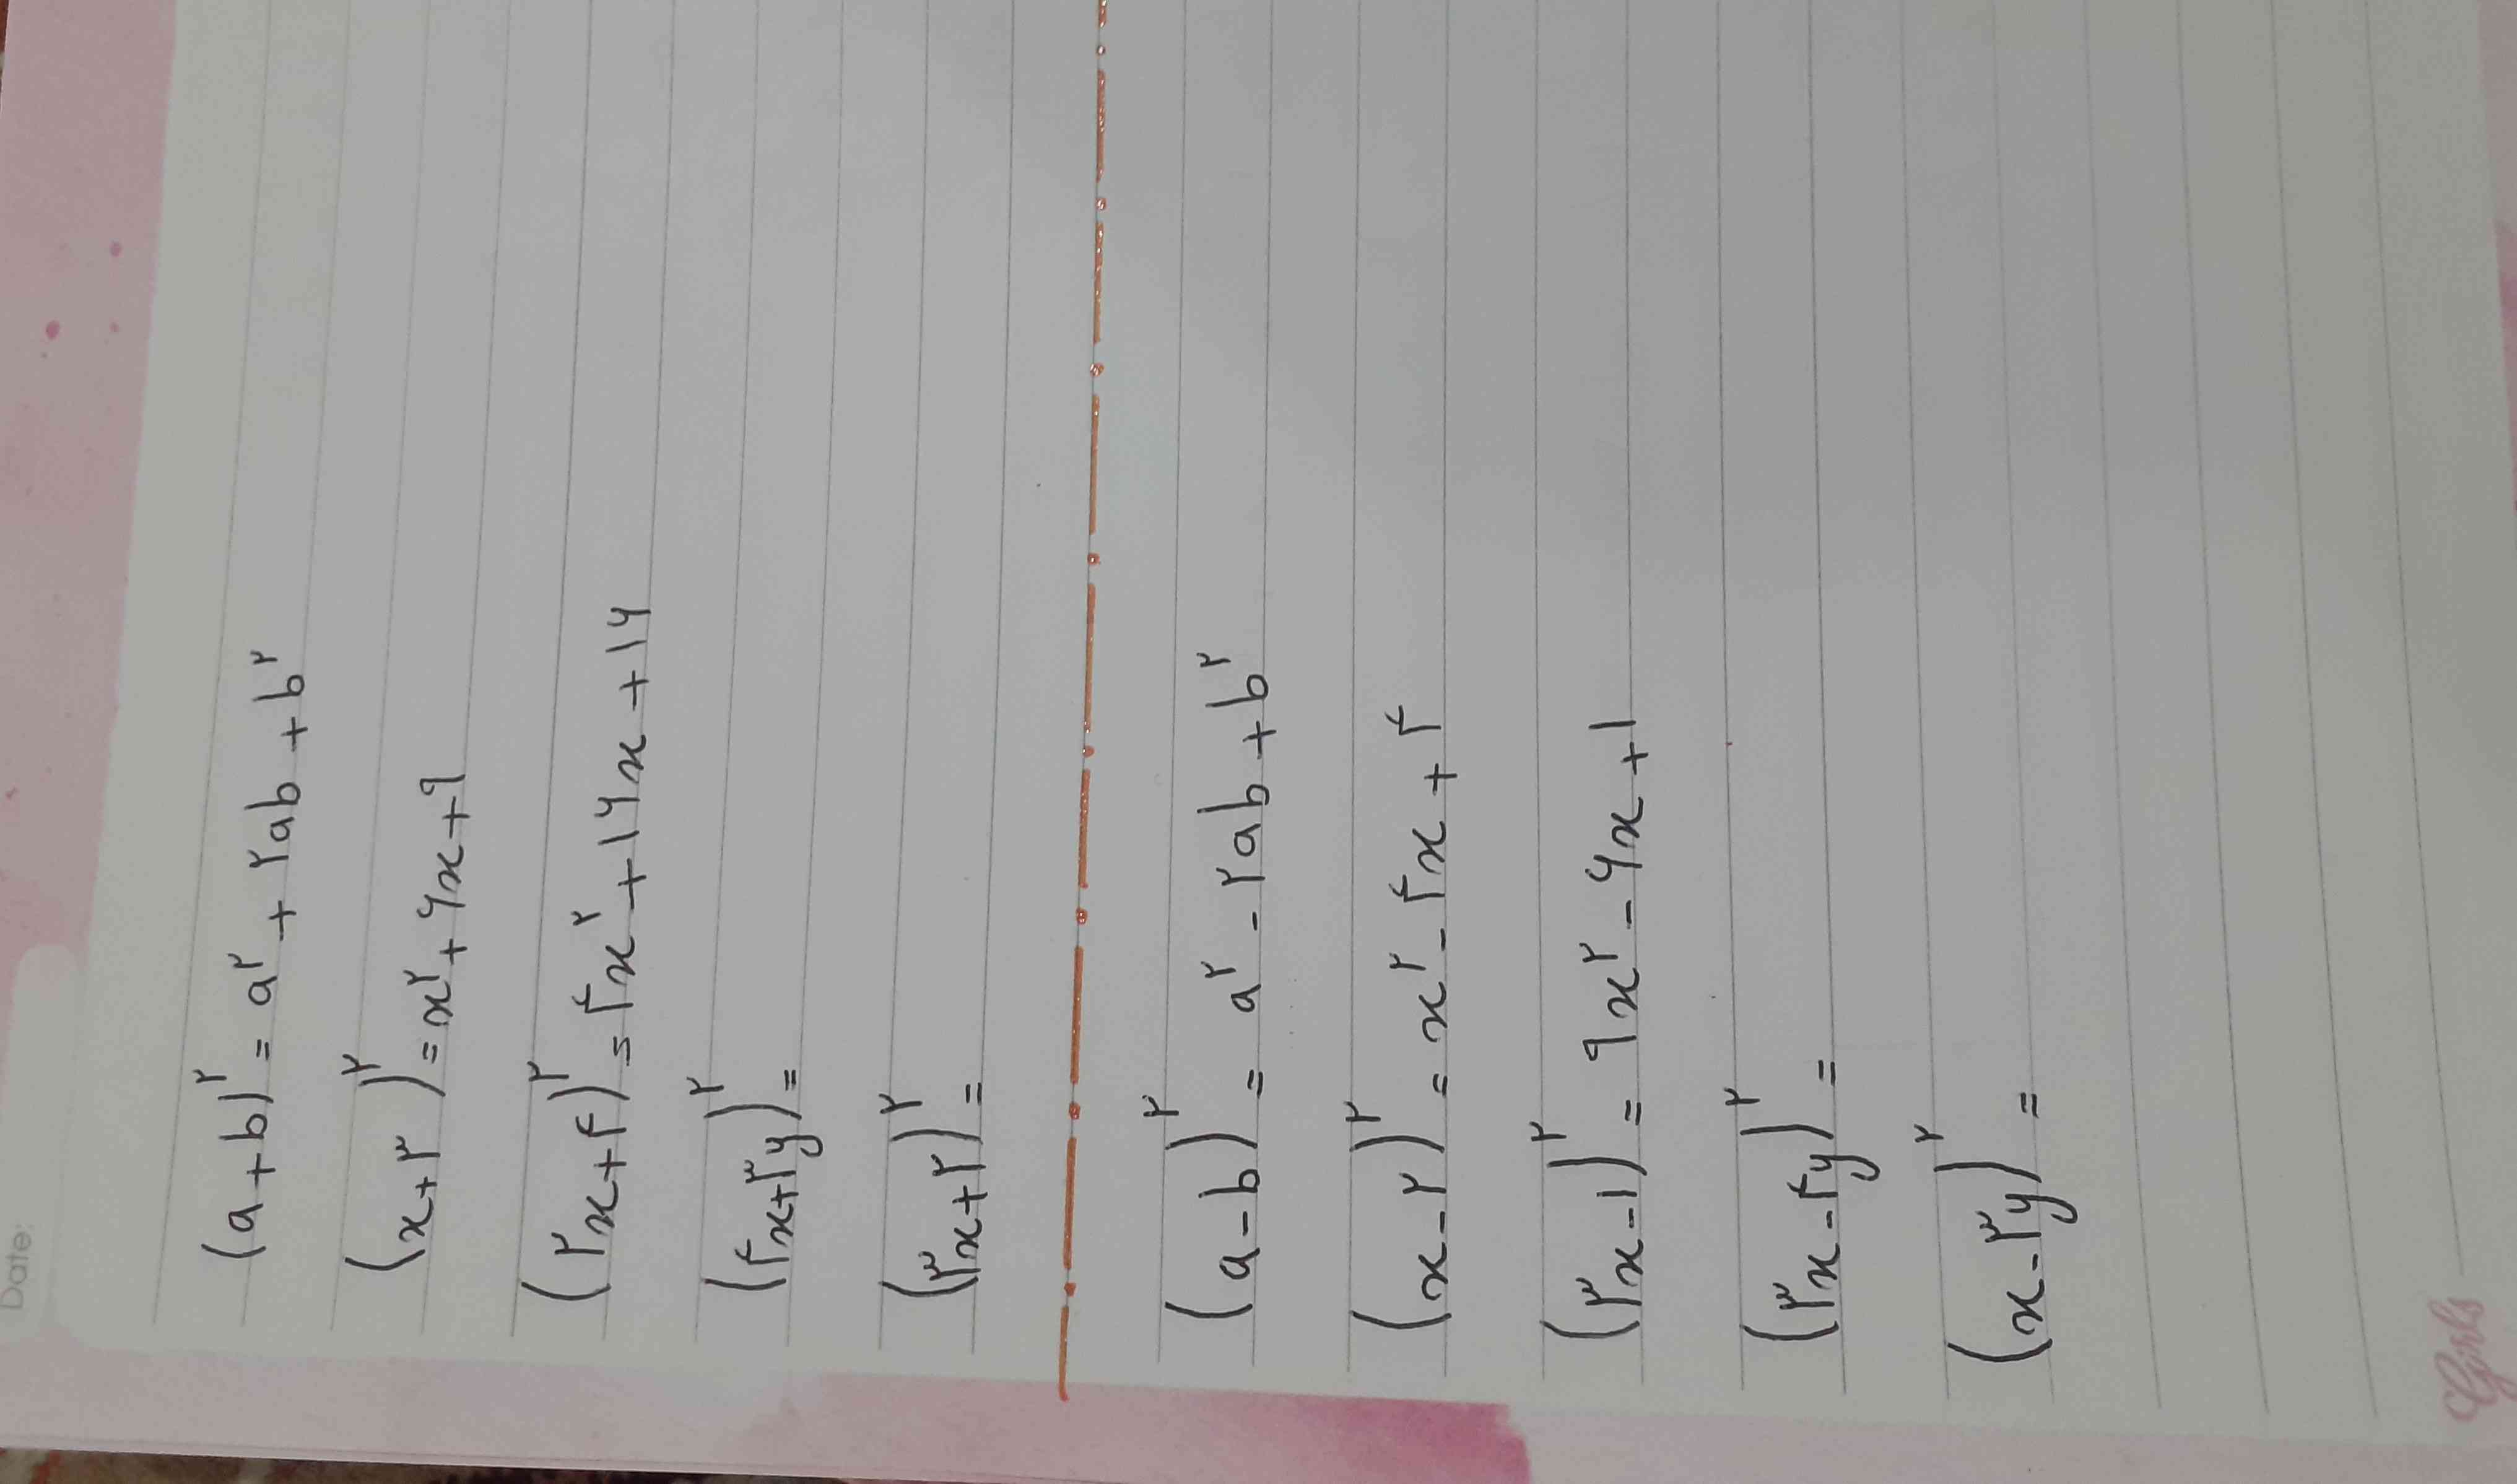 Date:
(a+b)^۲ = a^۲ + ۲ab + b^۲
(x+۳)^۲ = x^۲ + ۶x + ۹
(۲x+۴)^۲ = ۴x^۲ + ۱۶x + ۱۶
(۴x+۳y)^۲ =
(۳x+۲)^۲ =
(a-b)^۲ = a^۲ - ۲ab + b^۲
(x-۲)^۲ = x^۲ - ۴x + ۴
(۳x-۱)^۲ = ۹x^۲ - ۶x + ۱
(۳x-۴y)^۲ =
(x-۳y)^۲ =
Girls